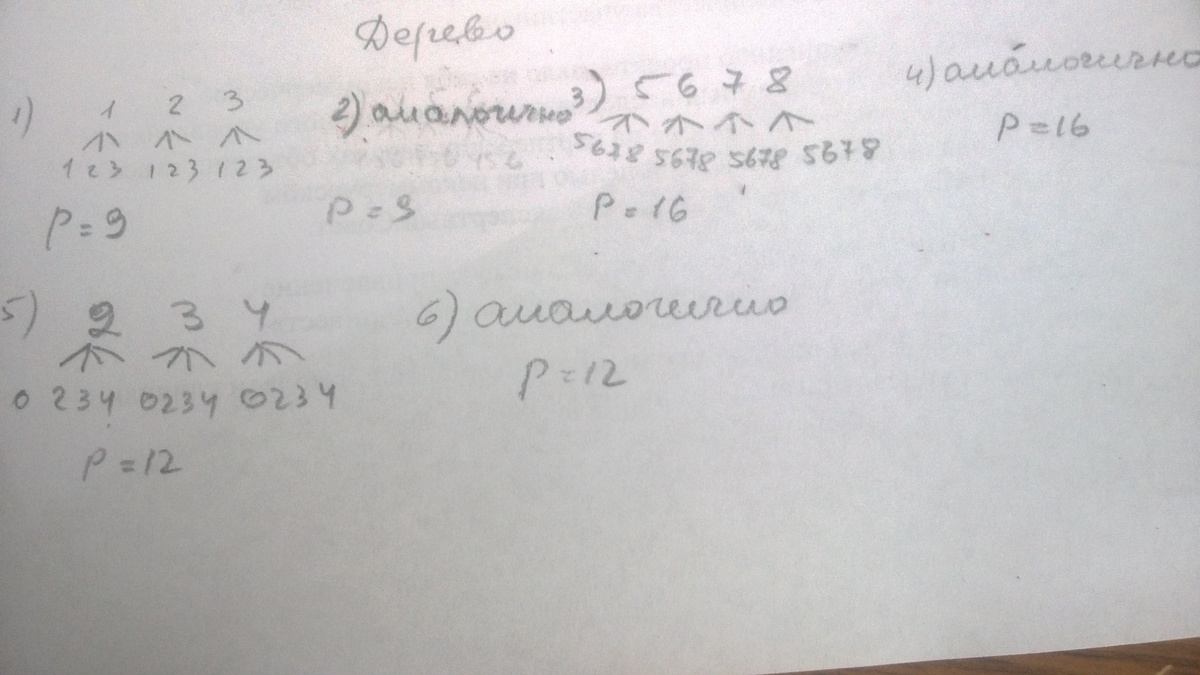 Дерево
1) 1 2 3
1 2 3 1 2 3 1 2 3
P = 9
2) аналогично
P = 9
3) 5 6 7 8
5678 5678 5678 5678
P = 16
4) аналогично
P = 16
5) 2 3 4
0 2 3 4 0 2 3 4 0 2 3 4
P = 12
6) аналогично
P = 12